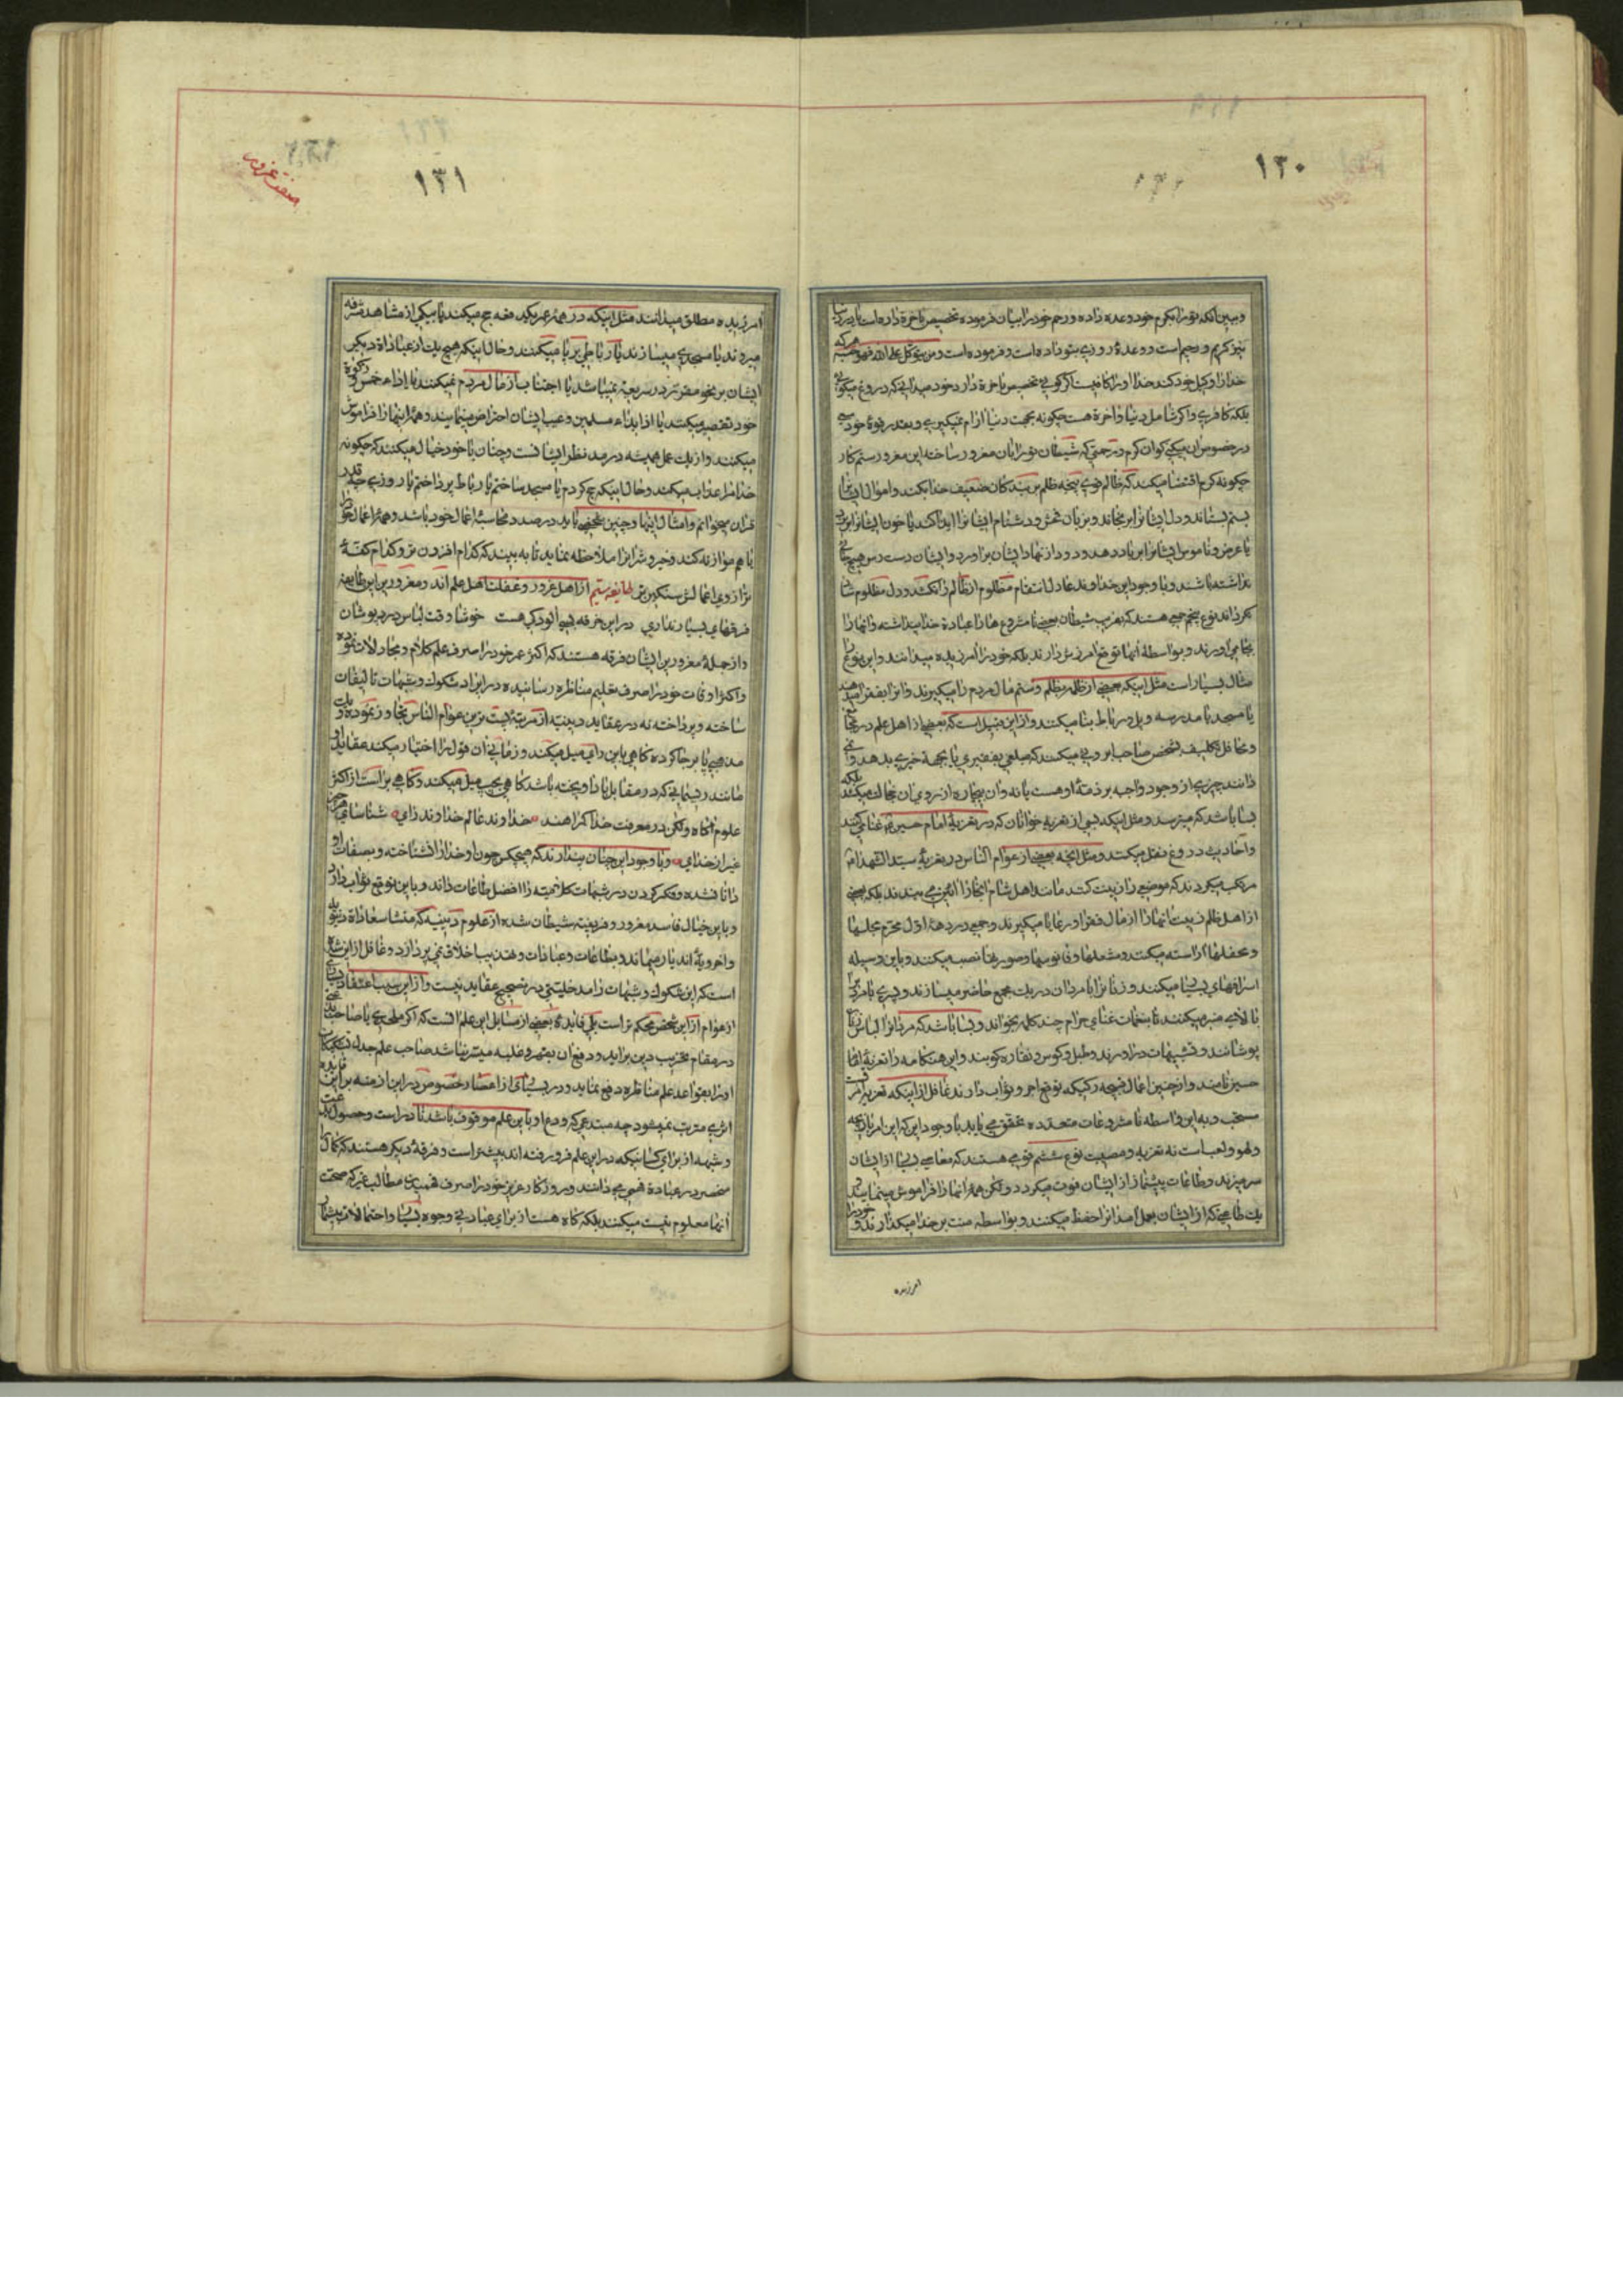 ۱۳۰
وببین آنکه تو را بکرم خود وعده داده و رحم خود را بیان فرموده تخصیص بآخرة داده است یا در دنیا
نیز کریم و رحیم است و وعدهٔ روزی بتو داده است و فرموده است ومن یتوکل علی الله فهو حسبه هر که
خدا را وکیل خود کند خدا او را کافیست اگر گوئی تخصیص بآخرة دارد خود میدانی که دروغ میگوئی
بلکه کافری و اگر شامل دنیا و آخرة هست چگونه بجهت دنیا آرام نمیگیری و بقدر قوهٔ خود سعی
در خصوص آن میکنی که آن کرم و رحمتی که شیطان تو را بآن مغرور ساخته این مغرور ستم کار
چگونه کرم اقتضا میکند که ظالم قوی پنجه ظلم بر بندگان ضعیف خدا بکند و اموال ایشان را
بستم بستاند و دل ایشان را برنجاند و بزبان فحش و دشنام ایشان را ایذا کند یا خون ایشان را بریزد
یا عرض و ناموس ایشان را بر باد دهد و دود از نهاد ایشان برآورد و ایشان دست رس هیچ جائی
نداشته باشند و با وجود این خداوند عادل انتقام مظلوم از ظالم را نکشد و دل مظلوم شاد
نگرداند نوع پنجم جمعی هستند که بفریب شیطان بعضی نا مشروع ها را عبادة خدا پنداشته و آنها را
بجا می آورند و بواسطهٔ آنها توقع آمرزش دارند بلکه خود را آمرزیده میدانند و این نوع را
مثال بسیار است مثل اینکه بعضی از ظلمه بظلم و ستم مال مردم را میگیرند و آنرا بفقرا میدهند
یا مسجد یا مدرسه و پل و رباط بنا میکنند و از این قبیل است که بعضی از اهل علم در مجالس
و محافل تکلیف بشخص صاحب آبروئی میکنند که مبلغی بفقیری یا بجهة خیری بدهد و نمی
دانند چیزی از وجوه واجبه بر ذمهٔ او هست یا نه و آن بیچاره از روی آن خجالت میکشد بلکه
بسا باشد که میترسد و مثل اینکه بسی از تعزیه خوانان که در تعزیهٔ امام حسین ع غنا میکنند
و احادیث دروغ نقل میکنند و مثل آنچه بعضی از عوام الناس در تعزیهٔ سید الشهدا ع
مرتکب میگردند که موضعی را زینت کنند مانند اهل شام آنجا را آئین می بندند بلکه بعضی
از اهل ظلم زینت آنها را از مال فقرا و رعایا میگیرند و جمعی در دههٔ اول محرم مجلسها
و محفلها آراسته میکنند و مشعلها و فانوسها و صورتها نصب میکنند و باین وسیله
اسرافهای بیجا میکنند و زنان را با مردان در یک مجمع حاضر میسازند و پسری نامرد را
بالای منبر میکنند تا بنغمات غنای حرام چند کلمه بخواند و بسا باشد که مردان را لباس زنان
پوشانند و تشبیهات درآورند و طبل و کوس و نقاره کوبند و این هنگامه را تعزیهٔ امام
حسین نامند و از چنین اعمال قبیحه رکیکه توقع اجر و ثواب دارند غافل از اینکه تعزیه امریست
مستحب و به این واسطه نا مشروعات متعدده تحقق می یابد با وجود این که این امر بازیچه
و لهو و لعب است نه تعزیه و مصیبت نوع ششم قومی هستند که معاصی بی انتها از ایشان
سر میزند و طاعات بیشمار از ایشان فوت میگردد و لکن همهٔ آنها را فراموش مینمایند
یک طاعتی که از ایشان بعمل آمد آنرا حفظ میکنند و بواسطه منت بر خدا میگذارند و خود را
آمرزیده
۱۳۱
صفت غرور
آمرزیده مطلق میدانند مثل اینکه در همهٔ عمر یکدفعه حج میکنند یا بیکی از مشاهد مشرفه
میروند یا مسجدی میسازند یا رباطی بر پا میکنند و حال اینکه هیچ یک از عبادات دیگر
ایشان بر نحو مقرر در شریعة نمیباشد یا اجتناب از مال مردم نمیکنند یا در اداء خمس و زکوة
خود تقصیر میکنند یا از ایذاء مسلمین و عیب ایشان احتراز نمینمایند و همهٔ اینها را فراموش
میکنند و از یک عمل همیشه در مد نظر ایشانست و چنان با خود خیال میکنند که چگونه
خدا مرا عذاب میکند و حال اینکه حج کردم یا مسجد ساختم یا رباط پرداختم یا روزی چه قدر
قرآن میخوانم و امثال اینها و چنین شخصی باید در صدد محاسبهٔ اعمال خود باشد و همهٔ اعمال خود را
با هم موازنه کند و خیر و شر آنرا ملاحظه نماید تا به بیند که کدام افزون تر و کدام کفهٔ
ترازوی اعمالش سنگین تر طایفه سیم از اهل غرور و غفلت اهل علم اند و مغرورین این طایفه
فرقهای بسیارند آری در این خرقه بسی آلودگی هست خوشا وقت لباس درد پوشان
و از جملهٔ مغرورین ایشان فرقه هستند که اکثر عمر خود را صرف علم کلام و مجادلات نموده
و اکثر اوقات خود را صرف تعلیم مناظره رسانیده در ایراد شکوک و شبهات تألیفات
ساخته و پرداخته نه در عقاید دینیه از مرتبهٔ پست ترین عوام الناس تجاوز نموده و نه یک
مذهبی پا بر جا کرده گاهی باین رای میل میکند و زمانی آن قول را اختیار میکند عقاید او
مانند ریسمانی که در مقابل باد آویخته باشد گاهی بچپ میل میکند و گاهی براست از اکثر
علوم آگاه و لکن در معرفت خدا گمراهند خداوند عالم خداوند رای شناسای هر چیز
غیر از خدای و با وجود این چنان پندارند که هیچکس چون او خدا را نشناخته و بصفات او
دانا نشده و فکر کردن در شبهات کلامیه را افضل طاعات داند و باین توقع ثواب دارد
و باین خیال فاسد مغرور و فریفته شیطان شده از علوم دینیه که منشأ سعادة دنیویه
و اخرویه اند باز میماند و بطاعات و عبادات و تهذیب اخلاق نمی پردازد و غافل از این شده
است که این شکوک و شبهات را مدخلیتی در تصحیح عقاید نیست و از این سبب اعتقاد بسیاری
از عوام از این شخص محکم تر است بلی فایدهٔ بعضی از مسایل این علم آنست که اگر ملحدی یا صاحب بدعتی
در مقام تخریب دین برآید و دفع آن بقهر و غلبه میسر نباشد صاحب علم جدل
او را بقواعد علم مناظره دفع نماید و در بسیاری از اعصار خصوص در این ازمنه بر این فایده
اثری مترتب نمیشود چه مبتدعی که دفع او باین علم موقوف باشد نادر است و حصول بدعت
و شبهه از برای کسانیکه در این علم فرو رفته اند بیشتر است و فرقهٔ دیگر هستند که کمال را
منحصر در عبادة فهمی می دانند و روزگار عزیز خود را صرف فهمیدن مطالب غیری که صحت
آنها معلوم نیست میکنند بلکه گاه هست از برای عبادتی وجوه بسیار و احتمالات بیشمار